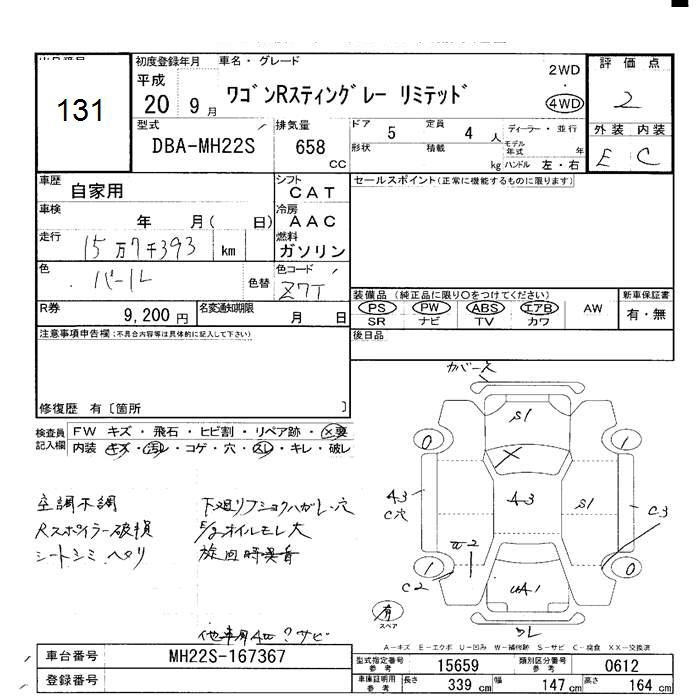 131
初度登録年月 車名・グレード
平成
20 9月 ワゴンRスティングレー リミテッド 2WD 4WD
評価点
2
外装 内装
E C
型式 DBA-MH22S
排気量 658 CC
ドア 5 定員 4 人 ディーラー・並行
形状 積載 kg モデル年式 年
ハンドル 左・右
車歴 自家用
シフト CAT
セールスポイント(正常に機能するものに限ります)
車検 年 月( 日)
冷房 AAC
走行 15万7千393 km
燃料 ガソリン
色 パール 色替
色コード Z7T
R券 9,200円
名変通知期限 月 日
装備品 (純正品に限り○をつけてください)
PS PW ABS エアB AW
SR ナビ TV カワ
新車保証書
有・無
注意事項申告欄(不具合内容等は具体的に記入して下さい)
後日品
修復歴 有〔箇所 〕
検査員記入欄 FW キズ・飛石・ヒビ割・リペア跡・×要
内装 キズ・汚レ・コゲ・穴・スレ・キレ・破レ
空調不調
Rスポイラー破損
シートシミ ヘリ
下廻リフショクハガレ・穴
E/gオイルモレ大
カバー欠
S1
0 1
X
A3 C穴
A3
S1
C3
W2
C2
1 0
UA1
有
スペア
A-キズ E-エクボ U-凹み W-補修跡 S-サビ C-腐食 XX-交換済
車台番号 MH22S-167367
登録番号
型式指定番号 参考 15659
類別区分番号 参考 0612
車庫証明用 参考 長さ 339 cm 幅 147 cm 高さ 164 cm